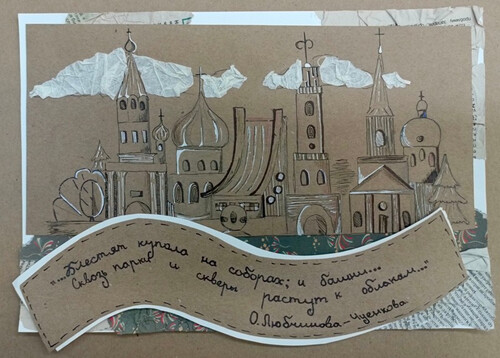 "...Блестят купала на соборах; и башни...
Сквозь парки и скверы растут к облакам..."
О.Любимова-Чуенкова